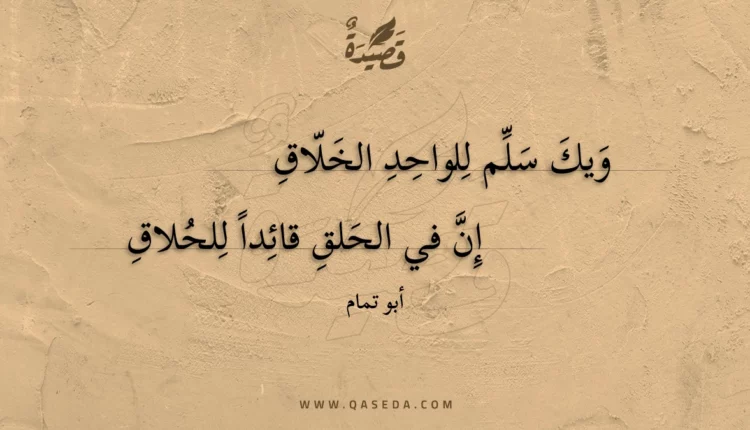 قَصِيْدَةٌ
وَيكَ سَلِّم لِلواحِدِ الخَلّاقِ
إِنَّ في الحَلقِ قائِداً لِلحُلاقِ
أبو تمام
WWW.QASEDA.COM